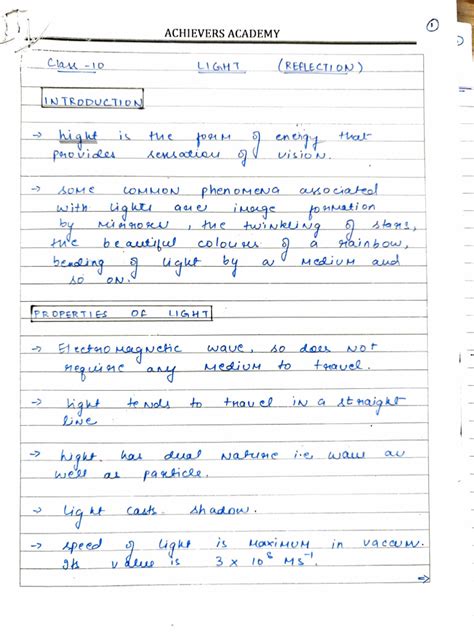 ACHIEVERS ACADEMY
1
Class - 10 LIGHT (REFLECTION)
INTRODUCTION
→ Light is the form of energy that
provides sensation of vision.
→ Some common phenomena associated
with lights are image formation
by mirrors, the twinkling of stars,
the beautiful colours of a rainbow,
bending of light by a medium and
so on.
PROPERTIES OF LIGHT
→ Electromagnetic wave, so does not
require any medium to travel.
→ Light tends to travel in a straight
line
→ Light has dual nature i.e. wave as
well as particle.
→ Light casts shadow.
→ Speed of light is maximum in vaccum.
Its value is 3 × 10⁸ MS⁻¹
⇒